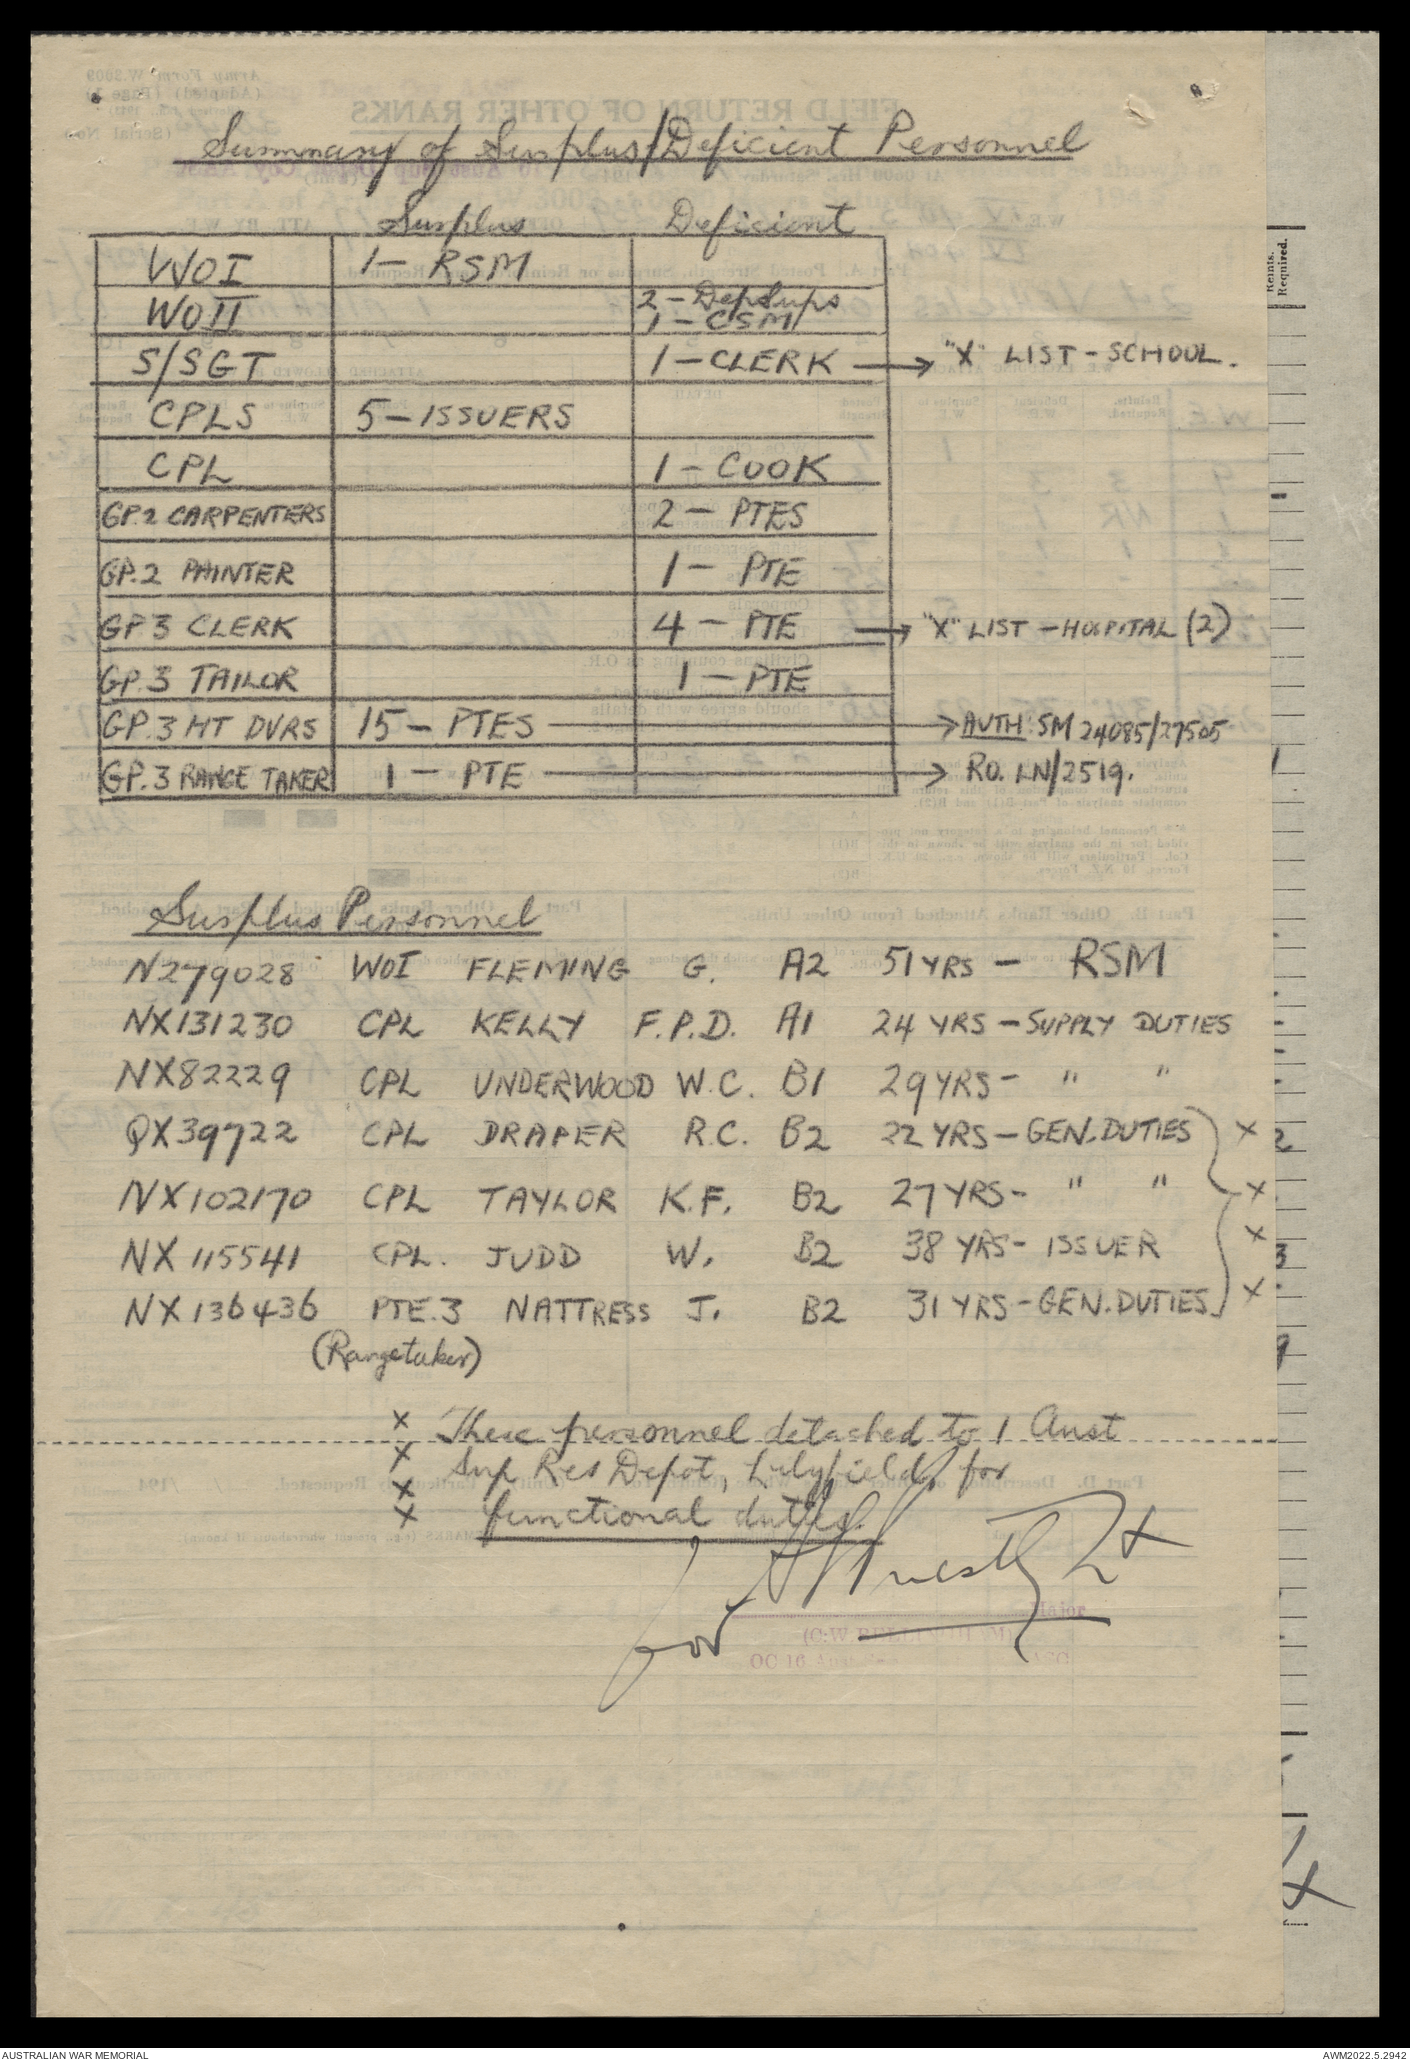 Summary of Surplus/Deficient Personnel
Surplus Deficient
WOI 1 - RSM
WOII 2 - DepSups
1 - CSM
S/SGT 1 - CLERK → "X" LIST - SCHOOL.
CPLS 5 - ISSUERS
CPL 1 - COOK
GP.2 CARPENTERS 2 - PTES
GP.2 PAINTER 1 - PTE
GP 3 CLERK 4 - PTE → "X" LIST - HOSPITAL (2)
GP.3 TAILOR 1 - PTE
GP.3 MT DVRS 15 - PTES → AUTH: SM 24085/27505
GP.3 RANGE TAKER 1 - PTE → RO. LN/2519.
Surplus Personnel
N279028 WOI FLEMING G. A2 51 YRS - RSM
NX131230 CPL KELLY F.P.D. A1 24 YRS - SUPPLY DUTIES
NX82229 CPL UNDERWOOD W.C. B1 29 YRS - " "
QX39722 CPL DRAPER R.C. B2 22 YRS - GEN. DUTIES x
NX102170 CPL TAYLOR K.F. B2 27 YRS - " " x
NX115541 CPL. JUDD W. B2 38 YRS - ISSUER x
NX136436 PTE.3 NATTRESS J. B2 31 YRS - GEN. DUTIES x
(Rangetaker)
x These personnel detached to 1 Aust
x Sup Res Depot, Lilyfield, for
x
x functional duties.
for Lt
Major
OC 16
Reints.
Required.
AUSTRALIAN WAR MEMORIAL AWM2022.5.2942